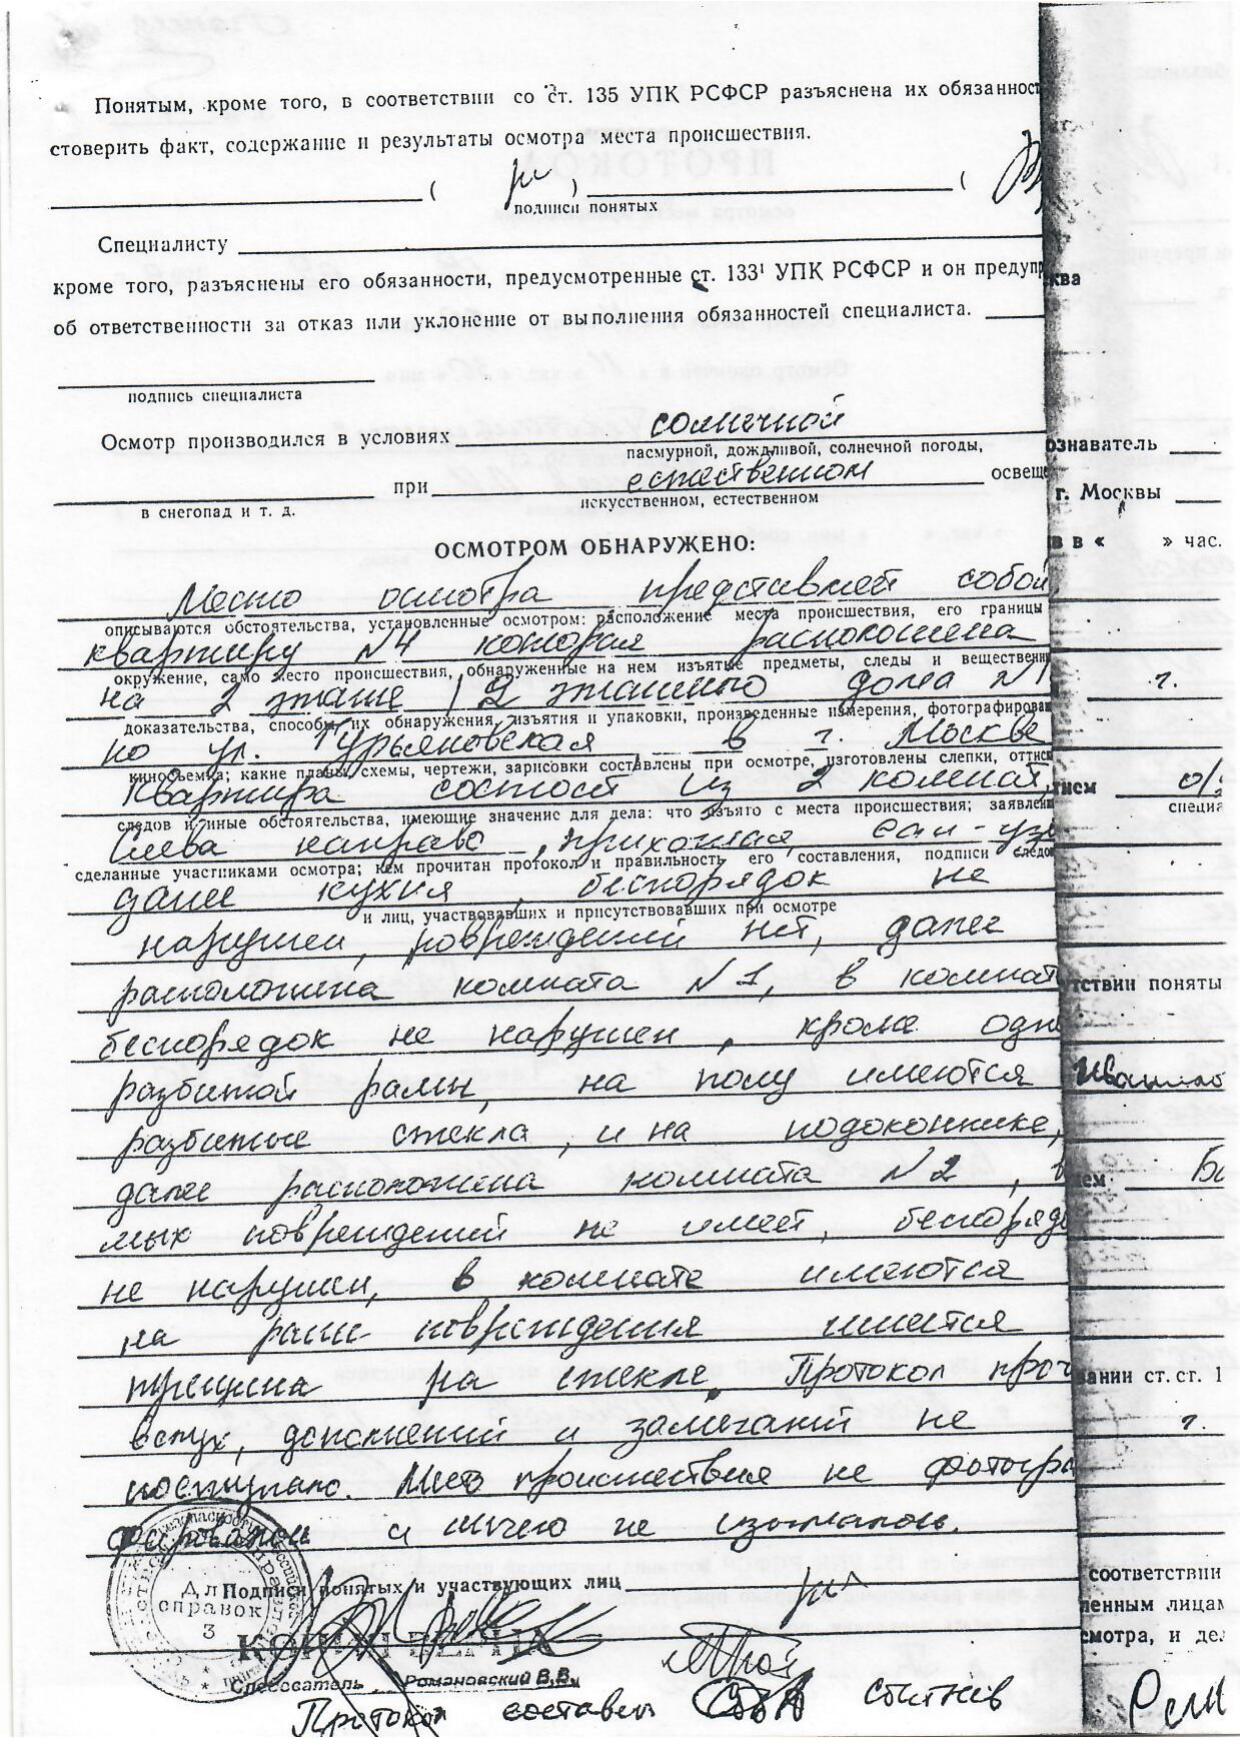 Понятым, кроме того, в соответствии со ст. 135 УПК РСФСР разъяснена их обязанност
стоверить факт, содержание и результаты осмотра места происшествия.
( ) (
подписи понятых
Специалисту
кроме того, разъяснены его обязанности, предусмотренные ст. 133¹ УПК РСФСР и он предупр
об ответственности за отказ или уклонение от выполнения обязанностей специалиста.
подпись специалиста
Осмотр производился в условиях солнечной
пасмурной, дождливой, солнечной погоды,
при естественном освеще
в снегопад и т. д. искусственном, естественном
ОСМОТРОМ ОБНАРУЖЕНО:
Место осмотра представляет собой
описываются обстоятельства, установленные осмотром: расположение места происшествия, его границы
квартиру №4 которая расположена
окружение, само место происшествия, обнаруженные на нем изъятые предметы, следы и вещественн
на 2 этаже 12 этажного дома №1
доказательства, способы их обнаружения, изъятия и упаковки, произведенные измерения, фотографирован
по ул. Гурьяновская в г. Москве
киносъемка; какие планы, схемы, чертежи, зарисовки составлены при осмотре, изготовлены слепки, оттис
Квартира состоит из 2 комнат,
следов и иные обстоятельства, имеющие значение для дела: что изъято с места происшествия; заявлени
Слева направо, прихожая, сан-узе
сделанные участниками осмотра; кем прочитан протокол и правильность его составления, подписи следов
далее кухня, беспорядок не
и лиц, участвовавших и присутствовавших при осмотре
нарушен, повреждений нет, далее
расположена комната №1, в комнат
беспорядок не нарушен, кроме одн
разбитой рамы, на полу имеются
разбитые стекла, и на подоконнике,
далее расположена комната №2, в
мых повреждений не имеет, беспоряд
не нарушен, в комнате имеются
на раме повреждения имеется
трещина на стекле. Протокол проч
вслух, дополнений и замечаний не
поступало. Место происшествия не фотогра
фировалось и ничего не изымалось.
Подписи понятых и участвующих лиц
Для справок 3
КОПИЯ ВЕРНА
Следователь Романовский В.В.
Протокол составил Сытнев
ква
ознаватель
г. Москвы
в в « » час.
г.
тием о/у
специа
тствии поняты
Иванов
ем
вании ст. ст. 1
г.
соответствии
ленным лицам
смотра, и де